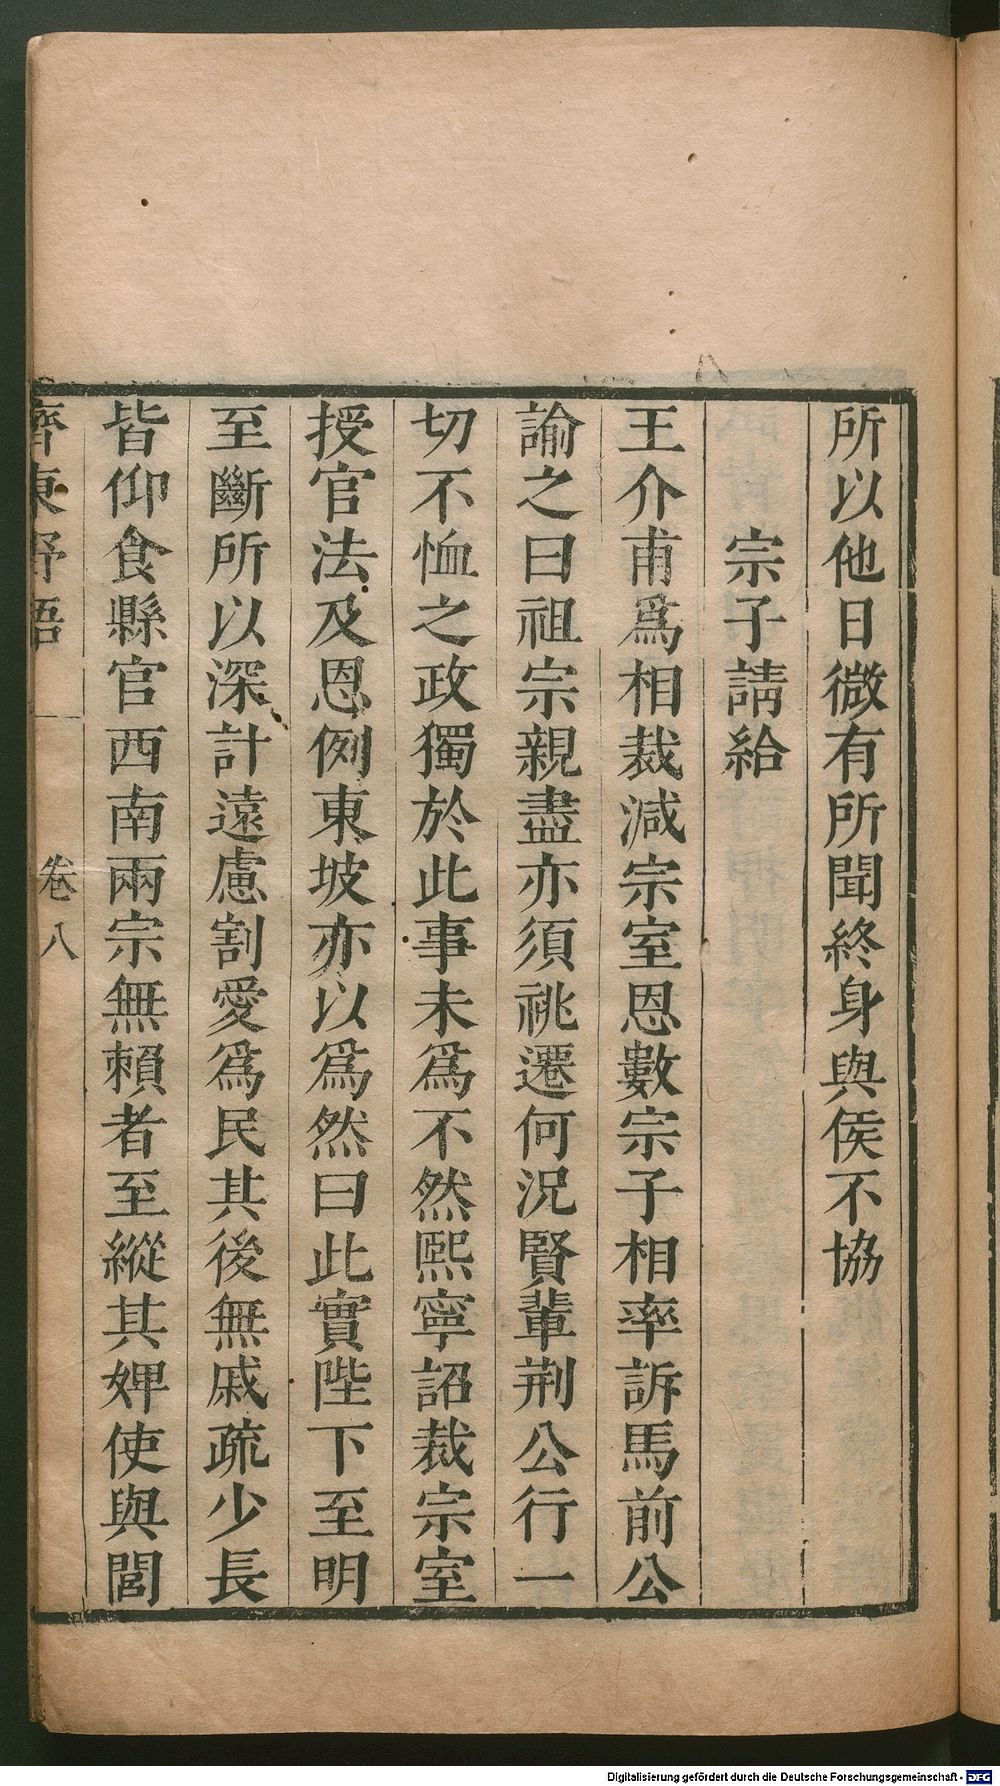 所以他日微有所聞終身與侯不協
宗子請給
王介甫爲相裁減宗室恩數宗子相率訴馬前公
諭之曰祖宗親盡亦須祧遷何況賢輩荆公行一
切不恤之政獨於此事未爲不然熙寧詔裁宗室
授官法及恩例東坡亦以爲然曰此實陛下至明
至斷所以深計遠慮割愛爲民其後無戚疏少長
皆仰食縣官西南兩宗無賴者至縱其婢使與閭
齊東野語
卷八
Digitalisierung gefördert durch die Deutsche Forschungsgemeinschaft - DFG